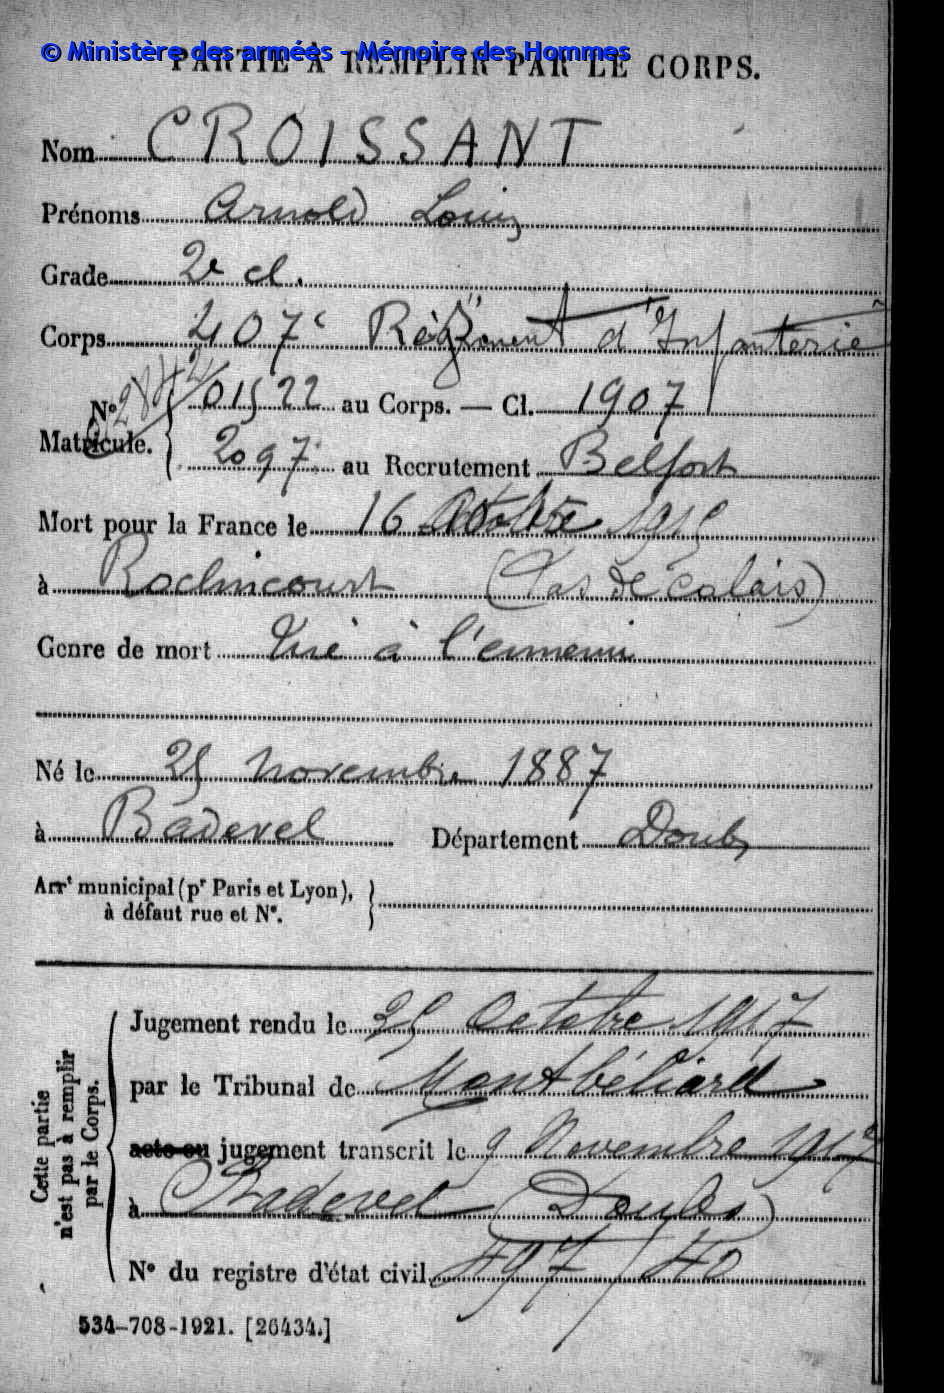 © Ministère des armées - Mémoire des Hommes
PARTIE À REMPLIR PAR LE CORPS.
Nom CROISSANT
Prénoms Arnold Louis
Grade 2e cl.
Corps 407e Régiment d'Infanterie
Nº 01522 au Corps. — Cl. 1907
Matricule. 2097 au Recrutement Belfort
Mort pour la France le 16 Octobre 1915
à Roclincourt (Pas de Calais)
Genre de mort Tué à l'ennemi
Né le 25 Novembre 1887
à Badevel Département Doubs
Arrt municipal (pr Paris et Lyon),
à défaut rue et Nº.
Cette partie
n'est pas à remplir
par le Corps.
Jugement rendu le 25 Octobre 1917
par le Tribunal de Montbéliard
acte ou jugement transcrit le 9 Novembre 1917
à Badevel (Doubs)
Nº du registre d'état civil 497/40
534-708-1921. [26434.]